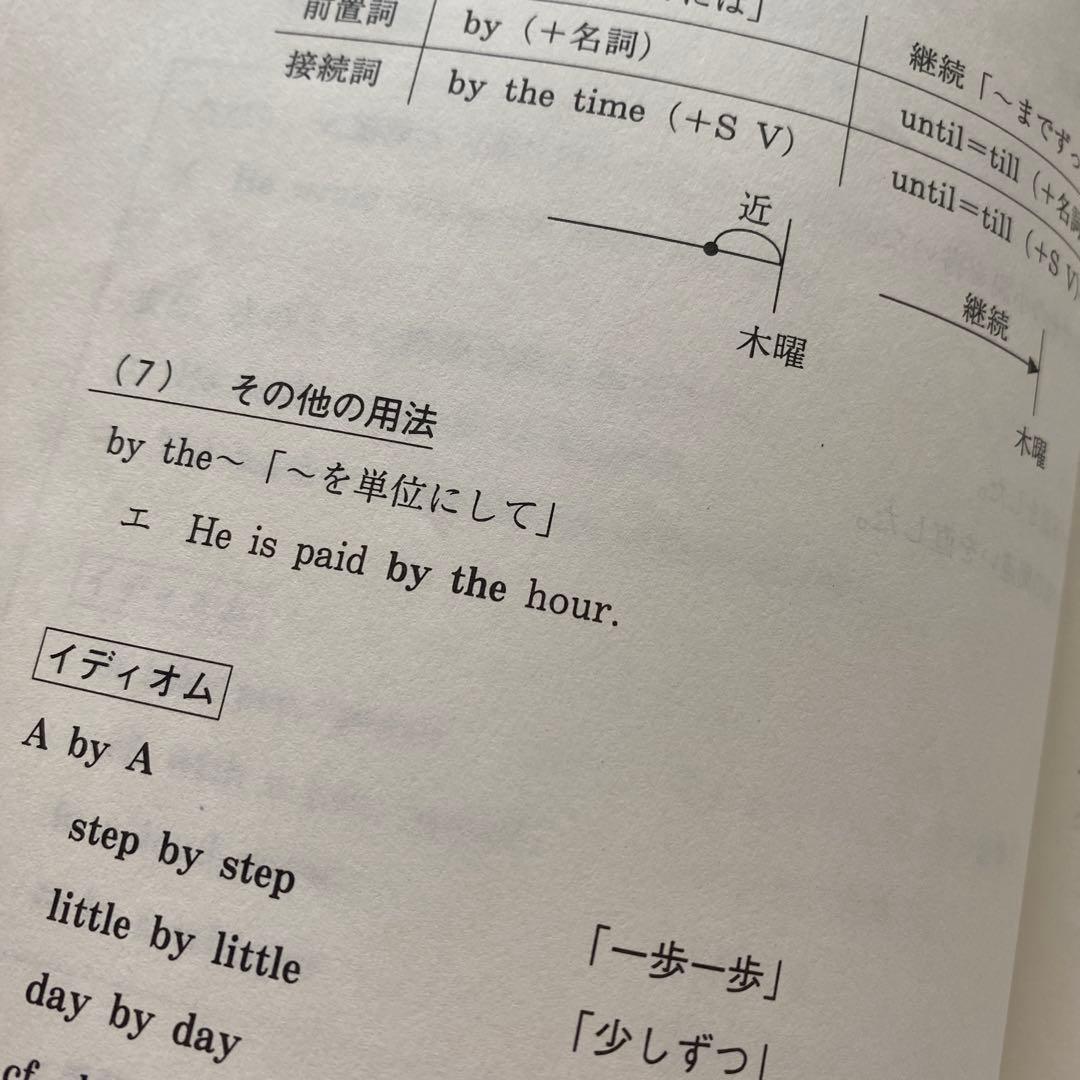 には」
継続「～までずっ
前置詞 by (＋名詞) until＝till (＋名詞
接続詞 by the time (＋S V) until＝till (＋S V)
近
木曜
継続
木曜
(7) その他の用法
by the～「～を単位にして」
エ He is paid by the hour.
イディオム
A by A
step by step 「一歩一歩」
little by little 「少しずつ」
day by day
cf.